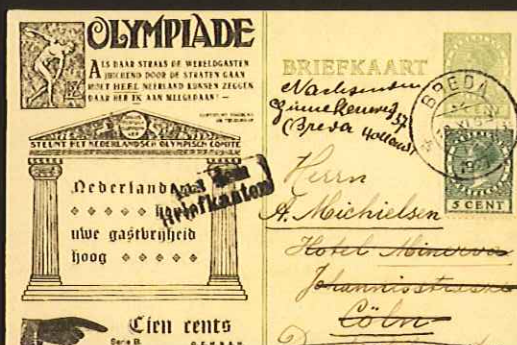 OLYMPIADE
ALS DAAR STRAKS DE WERELDGASTEN
JUICHEND DOOR DE STRATEN GAAN
MOET HEEL NEERLAND KUNNEN ZEGGEN
DAAR HEB IK AAN MEEGEDAAN! —
STEUNT HET NEDERLANDSCH OLYMPISCH COMITÉ
Nederland
uwe gastvrijheid
hoog
Aus dem
Briefkasten
Cien cents
Serie B.
BRIEFKAART
Nachsenden
Ginnekenweg 37
Breda Holland
BREDA
5 CENT
Herrn
A. Michielsen
Hotel Minerva
Johannisstrasse
Cöln